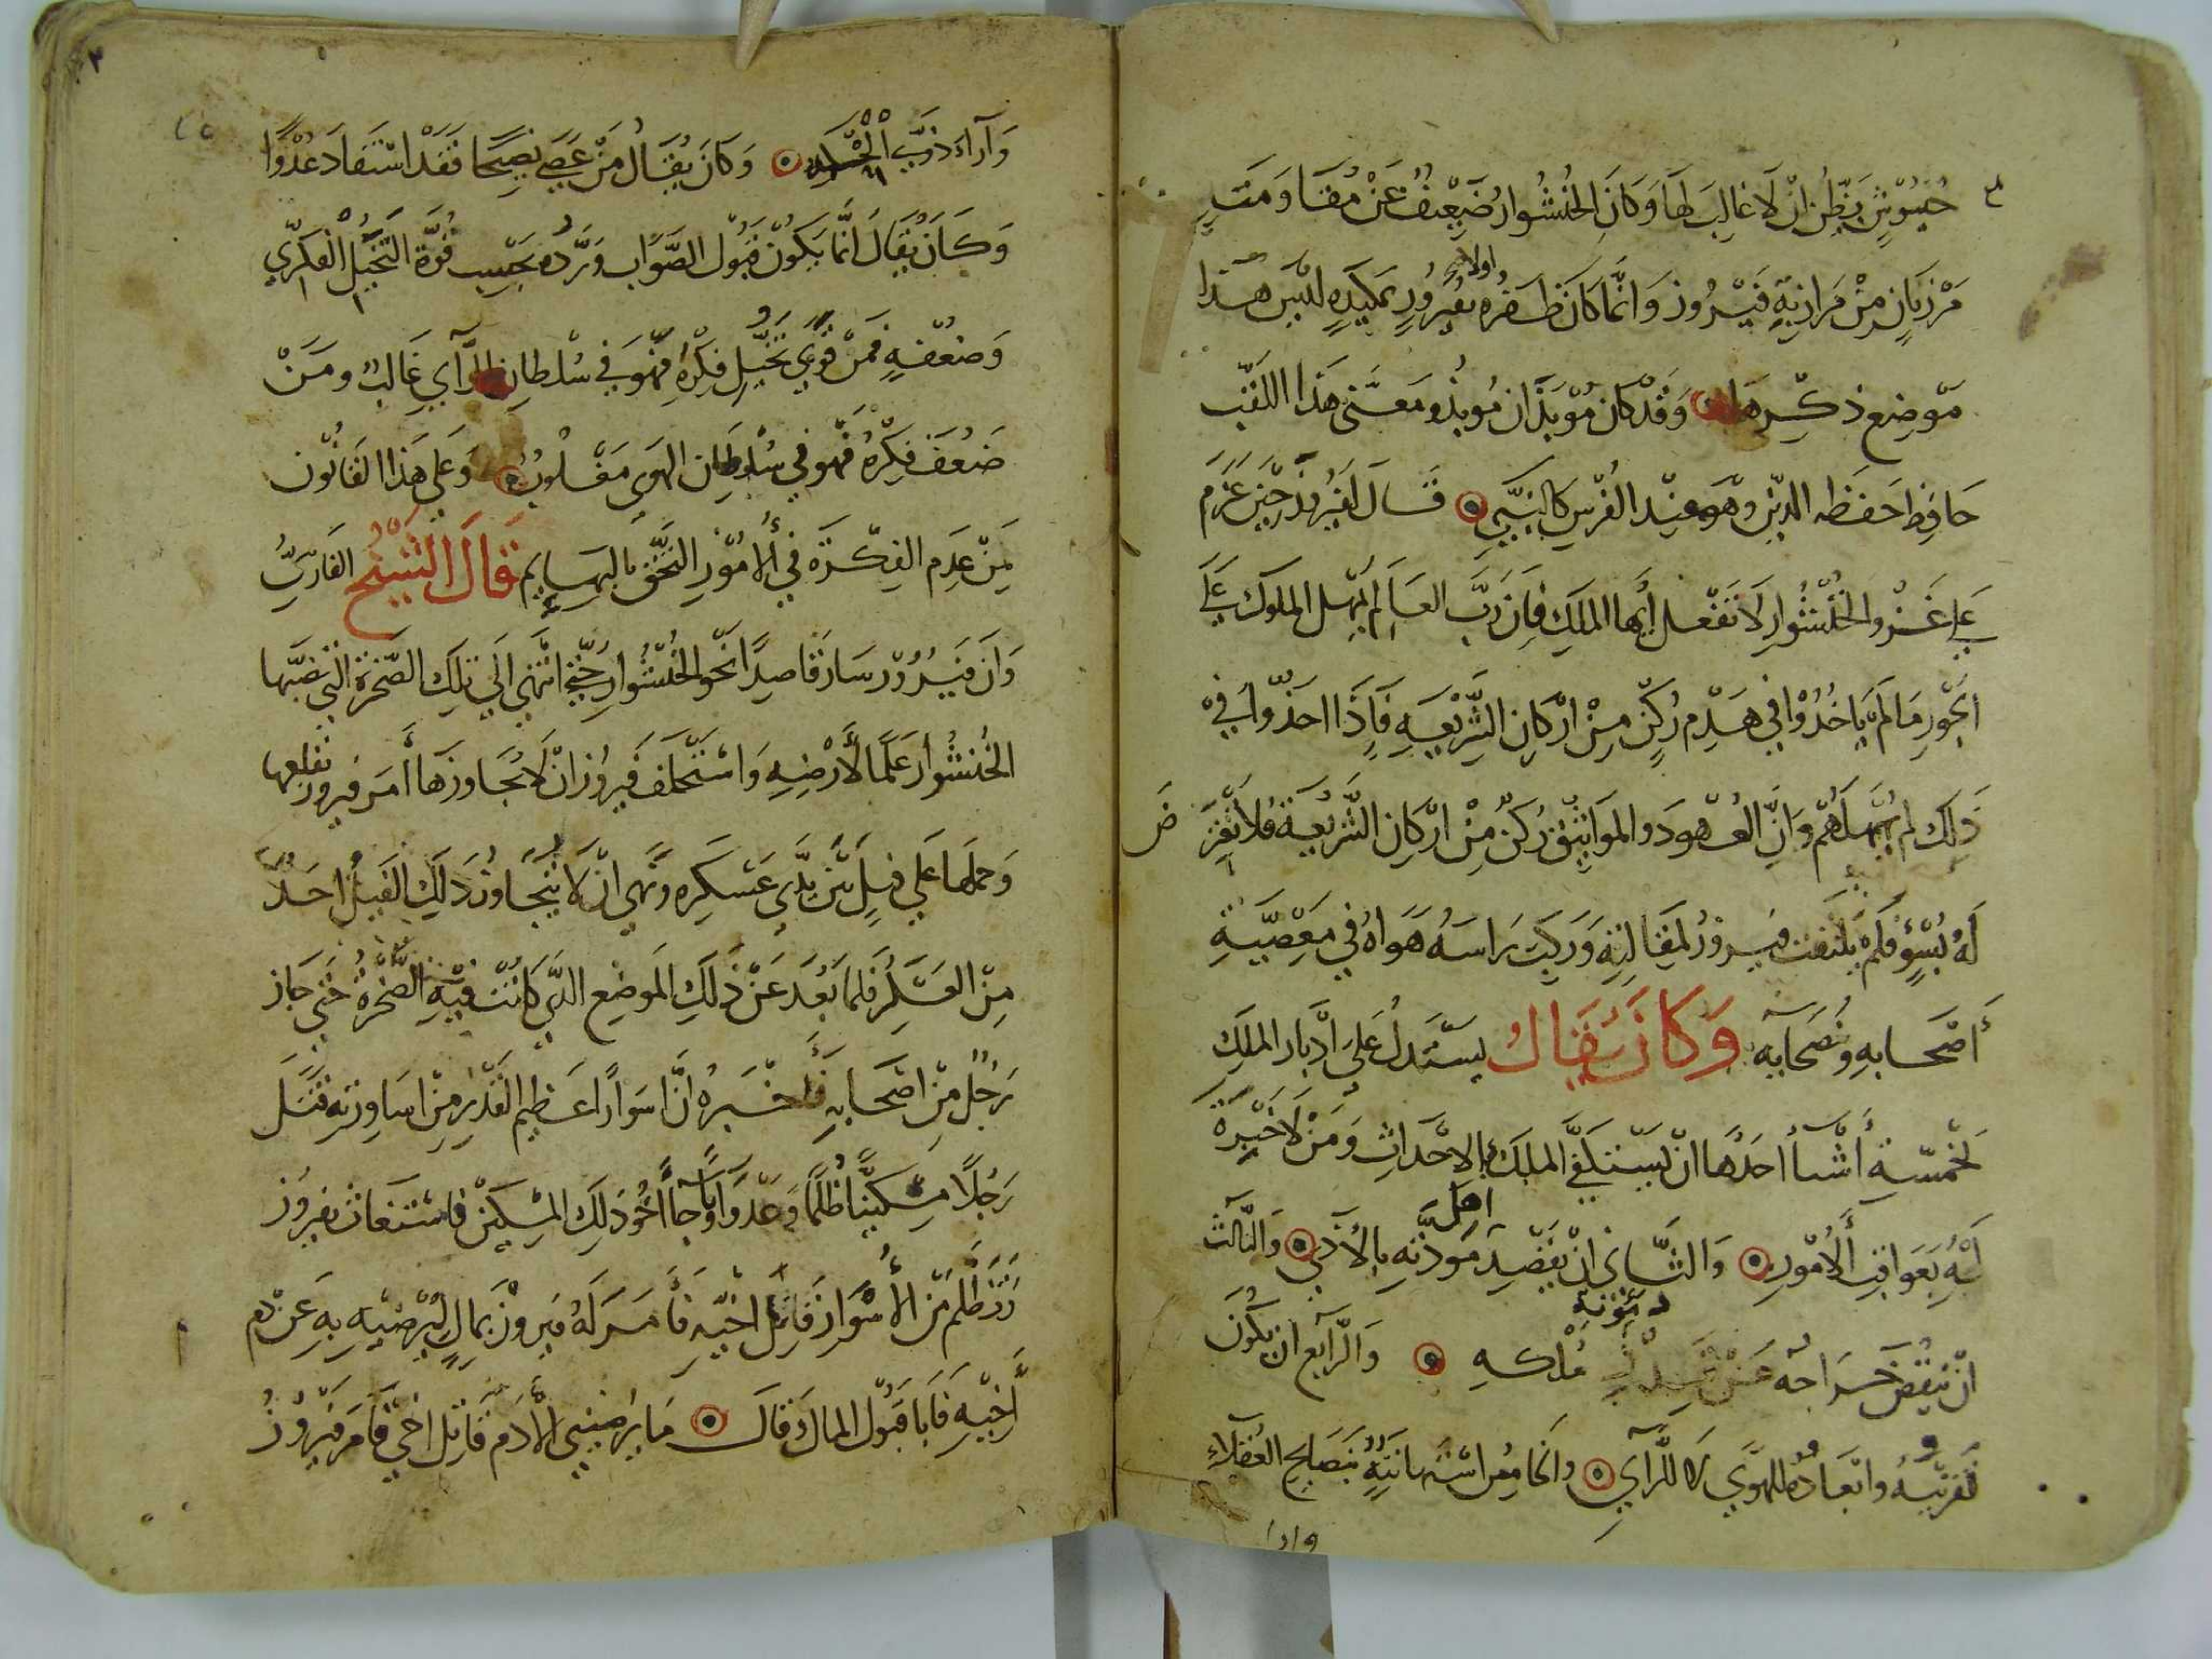 جُيُوشٍ يَظُنُّ انْ لَا غالِبَ لَهَا وَكَانَ الخُنشُوارُ ضَعِيْفُ عَنْ مُقَاوَمَتِ
اولا
مَرْزَبَانٍ مِنْ مَرَازِبَةِ فَيْرُوز وَانَّما كَانَ ظَفَرُه بفيرُوز بمَكِيْدَةٍ لَيْسَ هَذا
مَوضِع ذكْرِهَا وَقَدْ كان مُوْبَذَان مُوبذ ومَعْنى هَذا اللقَب
حَافِظ حَفَظَه الدِّين وهُوَ عِنْد الفُرْس كالنَّبيّ قَالَ لفَيرُوز حِيْنَ عَزَمَ
عَلي غَزْو الخُنْشُوار لَا تَفْعَل أيُّها المَلِك فاِنَّ رَبَّ العَالم يُمهل الملوك عَلَى
الجَور مَا لَمْ يَاخُذُوْا في هَدْمِ رُكنٍ مِنْ ارْكانِ الشَّرْيعَةِ فَاِذَا اخَذُوا فِيْ
ذَلك لم يُمْهِلْهُمْ وَانَّ العُهودَ والموَاثيْق رُكنٌ مِنْ ارْكان الشَّرِيعَة فلا تَعْرِ ض
لَهُ بُسْؤٍ فَلَمْ يلتفت فيروزُ لمَقَالتِهِ وَرَكبَ رَاسَه هَوَاهُ فِي مَعْصِيَةِ
أصْحَابهِ ونُصَحَايه وَكَانَ يُقَال يسْتَدلُ عَلَى ادْبار الملك
لخَمْسَةِ أشْيأ احَدُها انْ يَسْتكْفي الملك بالاحْدَاثِ وَمَنْ لَا خبْرَة
اهل
لَهُ بعَوَاقِب الأمُوْرِ وَالثّانِي انْ يقصِد مَوَدّته بالاذي وَالثَّالث
مؤنة
انْ يَنقُص خَرَاجُه عَنْ مُلكهِ وَالرّابع ان يَكُونَ
تَقرِيْبُهُ وابْعَادُهُ للهَوَي لَا للرَّاي والخامِسُ اسْتهانتِهُ بنَصَايح العُقَلاء
وارا
وَآراءَ ذوي وَكَانَ يُقَالُ مَنْ عَصَي نَصِيْحًا فَقَدْ اسْتَفادَ عُدْوًا
وَكَانَ يُقَالَ انَّما يَكُوْنُ قبُوْلُ الصَّوَاب وَرَدُّه بحَسْبِ قُوَّة التَّخَيُّل الفِكري
وَضعْفهِ فَمَنْ قَوِيَ تَخَيُّل فِكْرِهِ فهُوَ فِي سُلْطانِ الرَّأي غَالبٌ ومَنْ
ضَعُفَ فِكْرُهُ فهُو في سُلْطَانِ الهَوي مَغْلُوْبٌ وَعَلي هَذا القانُوْن
مَنْ عَدِم الفِكْرَة في الأمُوْرِ التَحَق بالبهَايِم قَالَ الشَيْخُ الفَارِسيُّ
وَانَّ فَيْرُوْز سَارَ قاصِدًا نَحْوَ الخُنْشُوار حَتي انتهَي الَي تلك الصَّخرة الَّتي نصَبَها
الخُنشُوار عَلَمًا لأرْضِهِ وَاسْتَحْلَف فَيرُوز انْ لا يُجَاوزهَا أمَرَ فيروز بقلعها
وَحَملها عَلي فيلٍ بَيْنَ يَدَي عَسْكرِه ونَهى انْ لا يَتجَاوز ذَلك الفيْل احَدٌ
مِنْ العَسْكر فلما بَعُدَ عَنْ ذَلك المَوضِع الذي كانتْ فيْهِ الصَّخْرةُ حَتي جاز
رَجُل مِنْ اصْحَابهِ فأخْبَرهُ انَّ اسوَارًا عَظِيم القَدْر مِنْ اسَاورته قَتَل
رَجُلًا مِسْكيْنًا ظُلْمًا وَعَدْوًا وَجاء أخُو ذلكَ المِسْكِيْن فاستَغاث بفيرُوز
وَتَظَلَّم مِن الأسْوَار قاتِل اخيْهِ فأمَرَ لَهُ فيروزْ بمَالٍ ليُرْضيْه بهِ عَنْ دم
أخِيْهِ فَابا قَبُوْل المال وَقالَ مَا يُرْضينيى الأدَم قاتِل اخي فأمَرَ فيرُوز